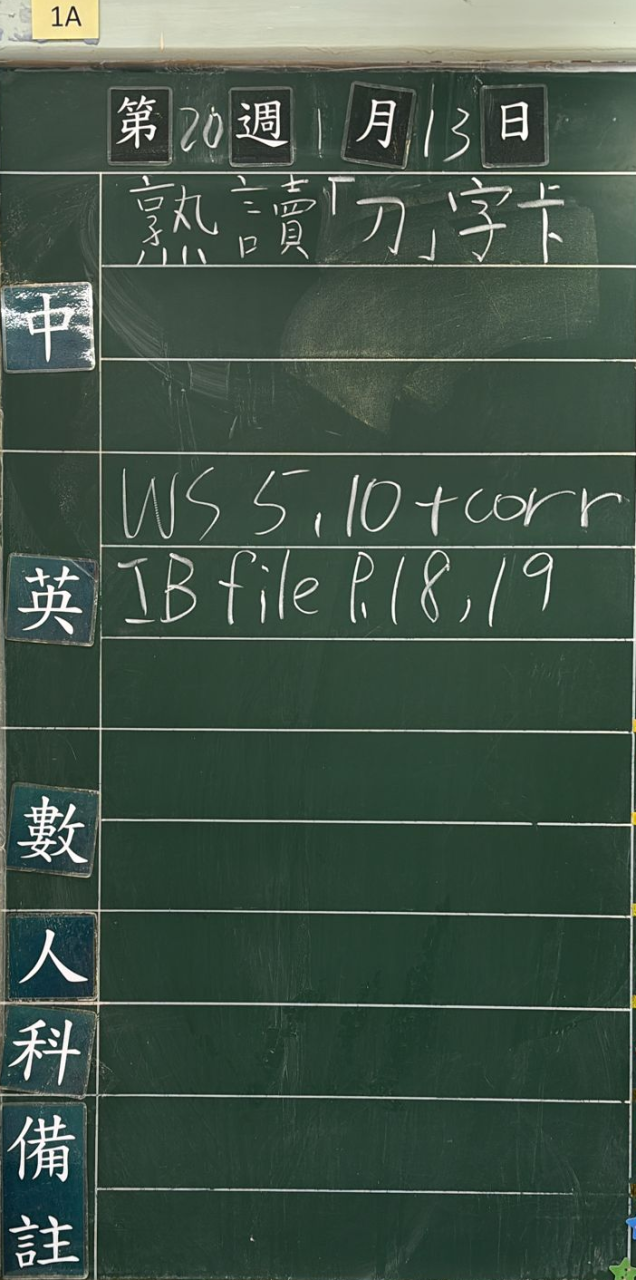 1A
第20週1月13日
熟讀「刀」字卡
中
WS 5,10+corr
英
IB file P.18,19
數
人
科
備
註